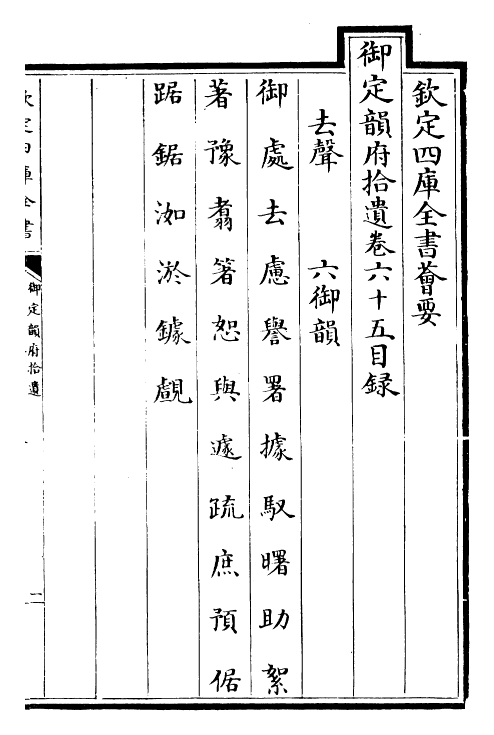 欽定四庫全書薈要
御定韻府拾遺卷六十五目録
去聲　六御韻
御處去慮譽署據馭曙助絮
著豫翥箸恕與遽疏庶預倨
踞鋸洳淤鐻覷
欽定四庫全書
御定韻府拾遺